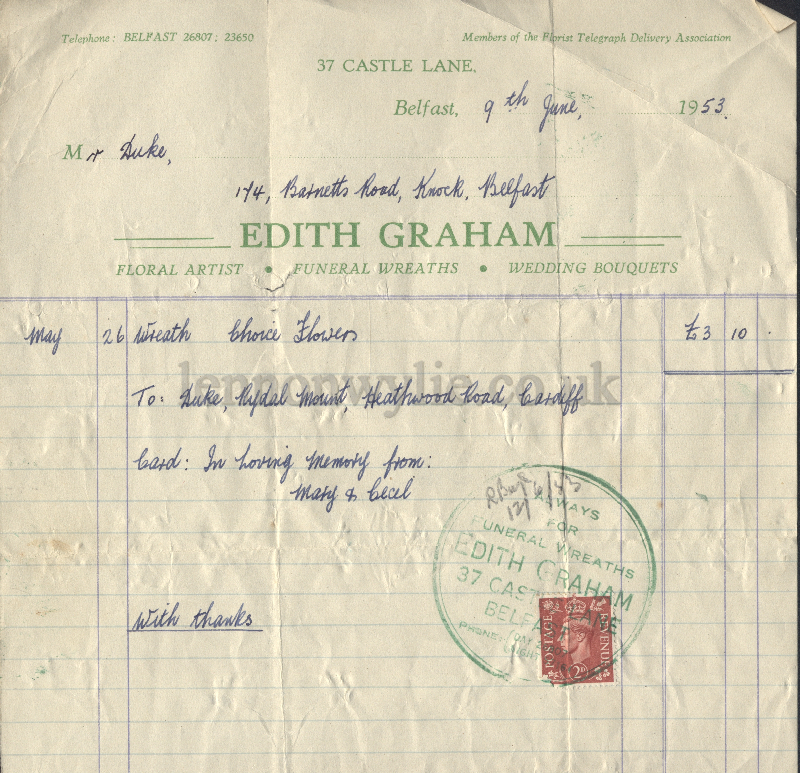 Telephone: BELFAST 26807; 23650
Members of the Florist Telegraph Delivery Association
37 CASTLE LANE,
Belfast, 9th June, 1953.
Mr Duke,
174, Barnetts Road, Knock, Belfast
EDITH GRAHAM
FLORAL ARTIST • FUNERAL WREATHS • WEDDING BOUQUETS
May 26 Wreath Choice Flowers £3 10 .
lennonwylie.co.uk
To: Duke, Rydal Mount, Heathwood Road, Cardiff
Card: In Loving Memory from:
Mary & Cecil
ALWAYS
FOR
FUNERAL WREATHS
EDITH GRAHAM
37 CASTLE LANE
BELFAST
PHONE: DAY
NIGHT
With thanks
POSTAGE REVENUE
2D